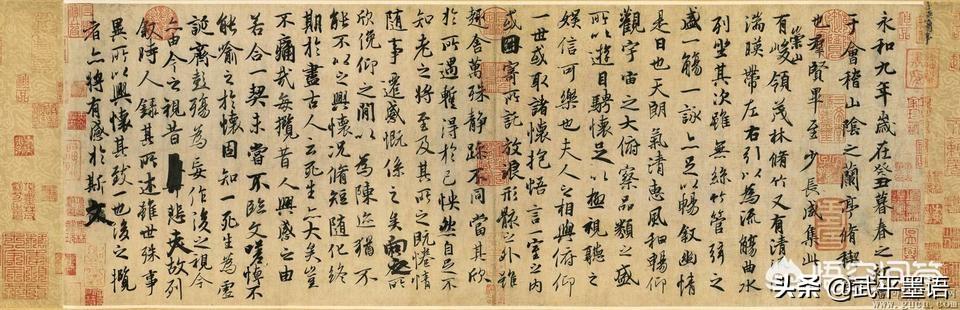 永和九年歲在癸丑暮春之
于會稽山陰之蘭亭脩稧
也群賢畢至少長咸集此
有崇山峻領茂林脩竹又有清
湍暎帶左右引以為流觴曲水
列坐其次雖無絲竹管弦之
盛一觴一詠亦足以暢敘幽情
是日也天朗氣清惠風和暢仰
觀宇宙之大俯察品類之盛
所以遊目騁懷足以極視聽之
娛信可樂也夫人之相與俯仰
一世或取諸懷抱悟言一室之內
或因寄所託放浪形骸之外雖
趣舍萬殊靜躁不同當其欣
於所遇蹔得於己怏然自足不
知老之將至及其所之既惓情
隨事遷感慨係之矣向之所
欣俛仰之閒以為陳迹猶不
能不以之興懷況脩短隨化終
期於盡古人云死生亦大矣豈
不痛哉每攬昔人興感之由
若合一契未嘗不臨文嗟悼不
能喻之於懷固知一死生為虛
誕齊彭殤為妄作後之視今
亦由今之視昔悲夫故列
敘時人錄其所述雖世殊事
異所以興懷其致一也後之攬
者亦將有感於斯文
悟空问答
头条@武平墨语
www.gucn.com